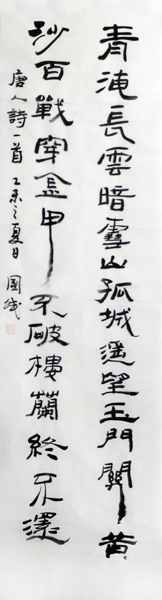 青海長雲暗雪山孤城遥望玉門關黃
沙百戰穿金甲不破樓蘭終不還
唐人詩一首 乙未之夏日 國